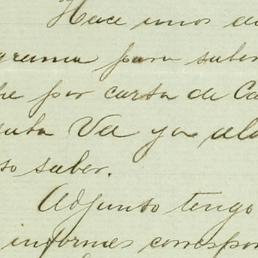 Hace unos di
grama para saber
he por carta de Ca
uta Va ya ala
so saber.
Adjunto tengo
informes correspon